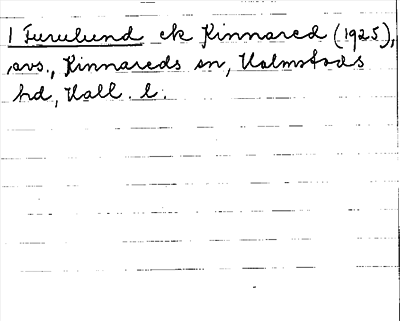 1 Furulund ek Kinnared (1925),
avs., Kinnareds sn, Halmstads
hd, Hall. l.